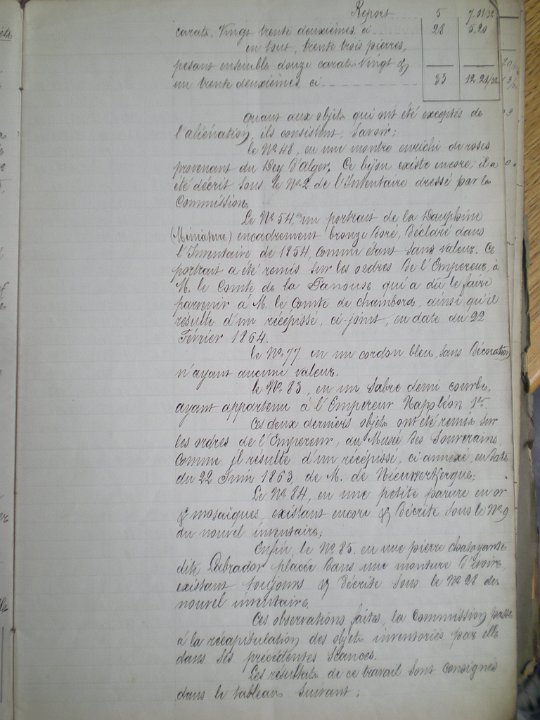 Report 5 7. 01/32
carats, Vingt trente deuxièmes, ci 28 5.20
en tout, trente trois pierres,
pesant ensemble douze carats Vingt &
un trente deuxièmes ci 33 12.21/32
Quant aux objets qui ont été exceptés de
l'aliénation, ils consistent, Savoir;
le No 48, en une montre enrichi de roses
provenant du Dey d'Alger. Ce bijou existe encore; il a
été décrit sous le No 2 de l'Inventaire dressé par la
Commission.
Le No 54, un portrait de la Dauphine
(Miniature) encadrement bronze doré, déclaré dans
l'Inventaire de 1854, comme étant sans valeur. Ce
portrait a été remis sur les ordres de l'Empereur, à
M. le Comte de la qui a dû le faire
parvenir à M. le Comte de Chambord, ainsi qu'il
résulte d'un récépissé, ci-joint, en date du 22
Février 1864.
le No 77 en un cordon bleu, sans Décoration
n'ayant aucune valeur.
le No 83, en un Sabre demi courbe,
ayant appartenu à l'Empereur Napoléon 1er.
Ces deux derniers objets ont été remis sur
les ordres de l'Empereur, au Musée des Souverains,
comme il résulte d'un récépissé, ci annexé, en date
du 22 Juin 1863, de M. de Nieuwerkerque;
Le No 84, en une petite parure en or
& mosaïques, existant encore & décrite sous le No 9
du nouvel inventaire;
Enfin, le No 85, en une pierre chatoyante
dite Labrador placée dans une monture d'ivoire
existant toujours & décrite sous le No 28 du
nouvel inventaire.
Ces observations faites, la Commission passe
à la récapitulation des objets inventoriés par elle
dans ses précédentes séances.
Les résultats de ce travail sont consignés
dans le tableau suivant;